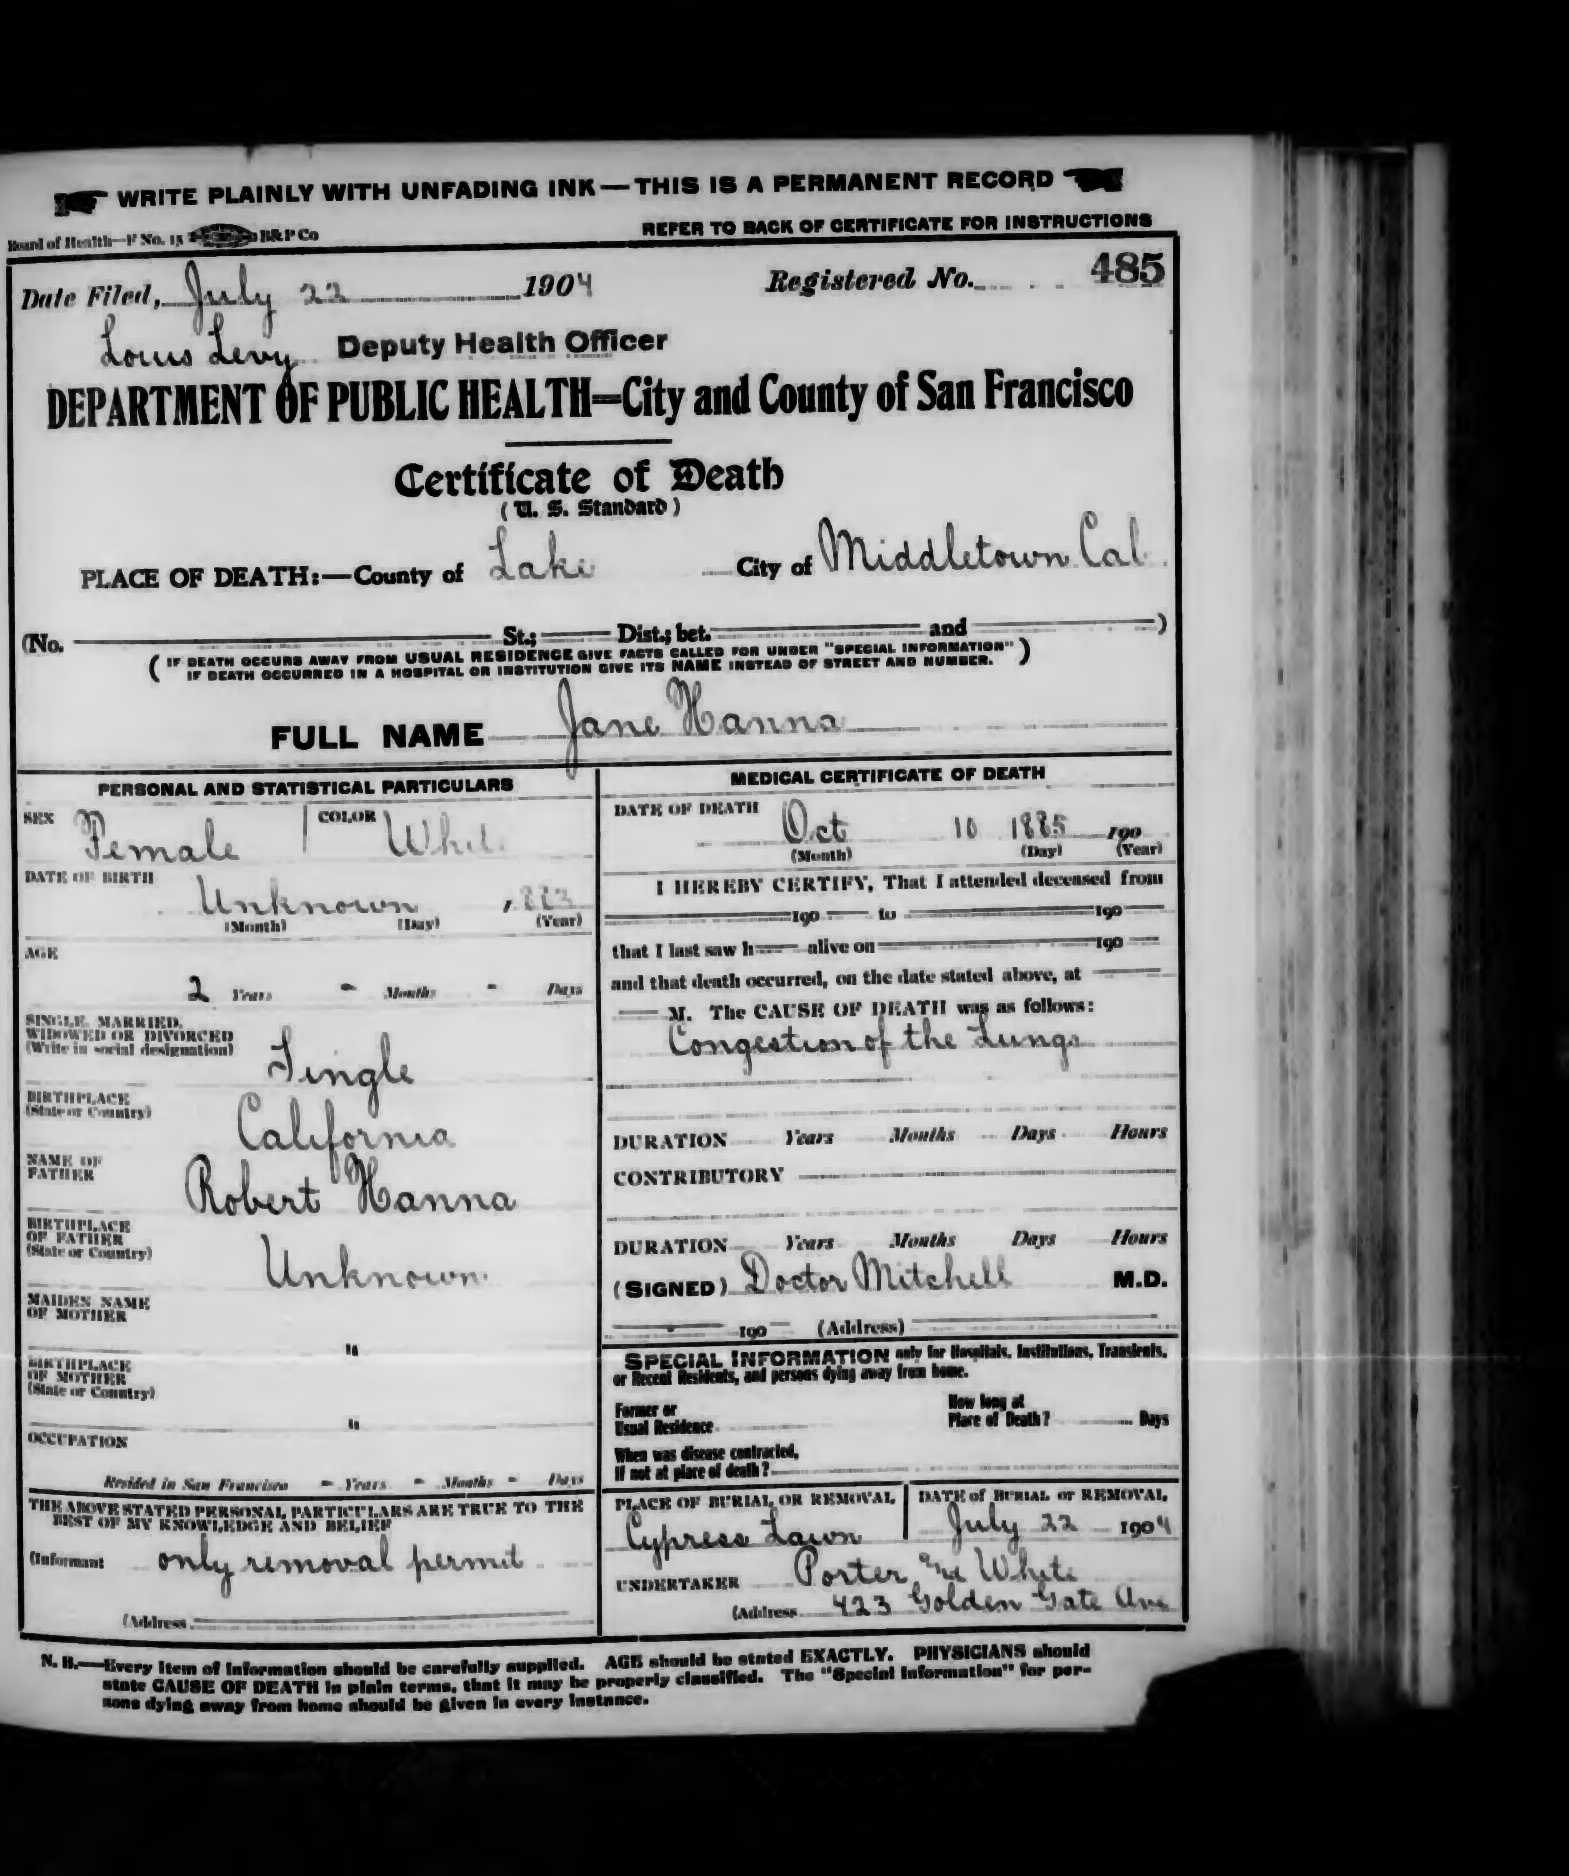 WRITE PLAINLY WITH UNFADING INK—THIS IS A PERMANENT RECORD
Board of Health—F No. 15 B&P Co
REFER TO BACK OF CERTIFICATE FOR INSTRUCTIONS
Date Filed, July 22 1904 Registered No. 485
Louis Levy Deputy Health Officer
DEPARTMENT OF PUBLIC HEALTH=City and County of San Francisco
Certificate of Death
(U. S. Standard)
PLACE OF DEATH:—County of Lake City of Middletown Cal
(No. St.; Dist.; bet. and )
( IF DEATH OCCURS AWAY FROM USUAL RESIDENCE GIVE FACTS CALLED FOR UNDER "SPECIAL INFORMATION" )
IF DEATH OCCURRED IN A HOSPITAL OR INSTITUTION GIVE ITS NAME INSTEAD OF STREET AND NUMBER.
FULL NAME Jane Hanna
PERSONAL AND STATISTICAL PARTICULARS
SEX Female COLOR White
DATE OF BIRTH
Unknown , 1883
(Month) (Day) (Year)
AGE
2 Years - Months - Days
SINGLE, MARRIED,
WIDOWED OR DIVORCED
(Write in social designation) Single
BIRTHPLACE
(State or Country) California
NAME OF
FATHER Robert Hanna
BIRTHPLACE
OF FATHER
(State or Country) Unknown
MAIDEN NAME
OF MOTHER
"
BIRTHPLACE
OF MOTHER
(State or Country)
"
OCCUPATION
Resided in San Francisco - Years - Months - Days
THE ABOVE STATED PERSONAL PARTICULARS ARE TRUE TO THE
BEST OF MY KNOWLEDGE AND BELIEF
(Informant only removal permit
(Address
MEDICAL CERTIFICATE OF DEATH
DATE OF DEATH
Oct 10 1885 190
(Month) (Day) (Year)
I HEREBY CERTIFY, That I attended deceased from
190 to 190
that I last saw h alive on 190
and that death occurred, on the date stated above, at
M. The CAUSE OF DEATH was as follows:
Congestion of the Lungs
DURATION Years Months Days Hours
CONTRIBUTORY
DURATION Years Months Days Hours
(SIGNED) Doctor Mitchell M.D.
190 (Address)
SPECIAL INFORMATION only for Hospitals, Institutions, Transients,
or Recent Residents, and persons dying away from home.
Former or
Usual Residence
How long at
Place of Death? Days
When was disease contracted,
If not at place of death?
PLACE OF BURIAL OR REMOVAL
Cypress Lawn
DATE of BURIAL or REMOVAL
July 22 1904
UNDERTAKER Porter & White
(Address 423 Golden Gate Ave
N. B.—Every item of information should be carefully supplied. AGE should be stated EXACTLY. PHYSICIANS should
state CAUSE OF DEATH in plain terms, that it may be properly classified. The "Special Information" for per-
sons dying away from home should be given in every instance.